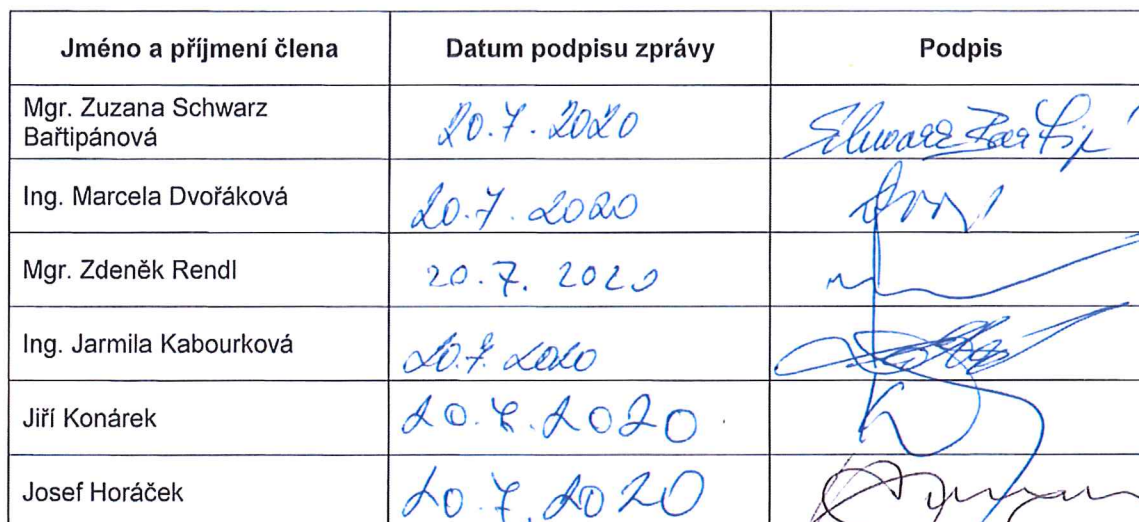 Jméno a příjmení člena Datum podpisu zprávy Podpis
Mgr. Zuzana Schwarz
Bařtipánová 20.7.2020
Ing. Marcela Dvořáková 20.7.2020
Mgr. Zdeněk Rendl 20.7.2020
Ing. Jarmila Kabourková 20.7.2020
Jiří Konárek 20.7.2020
Josef Horáček 20.7.2020